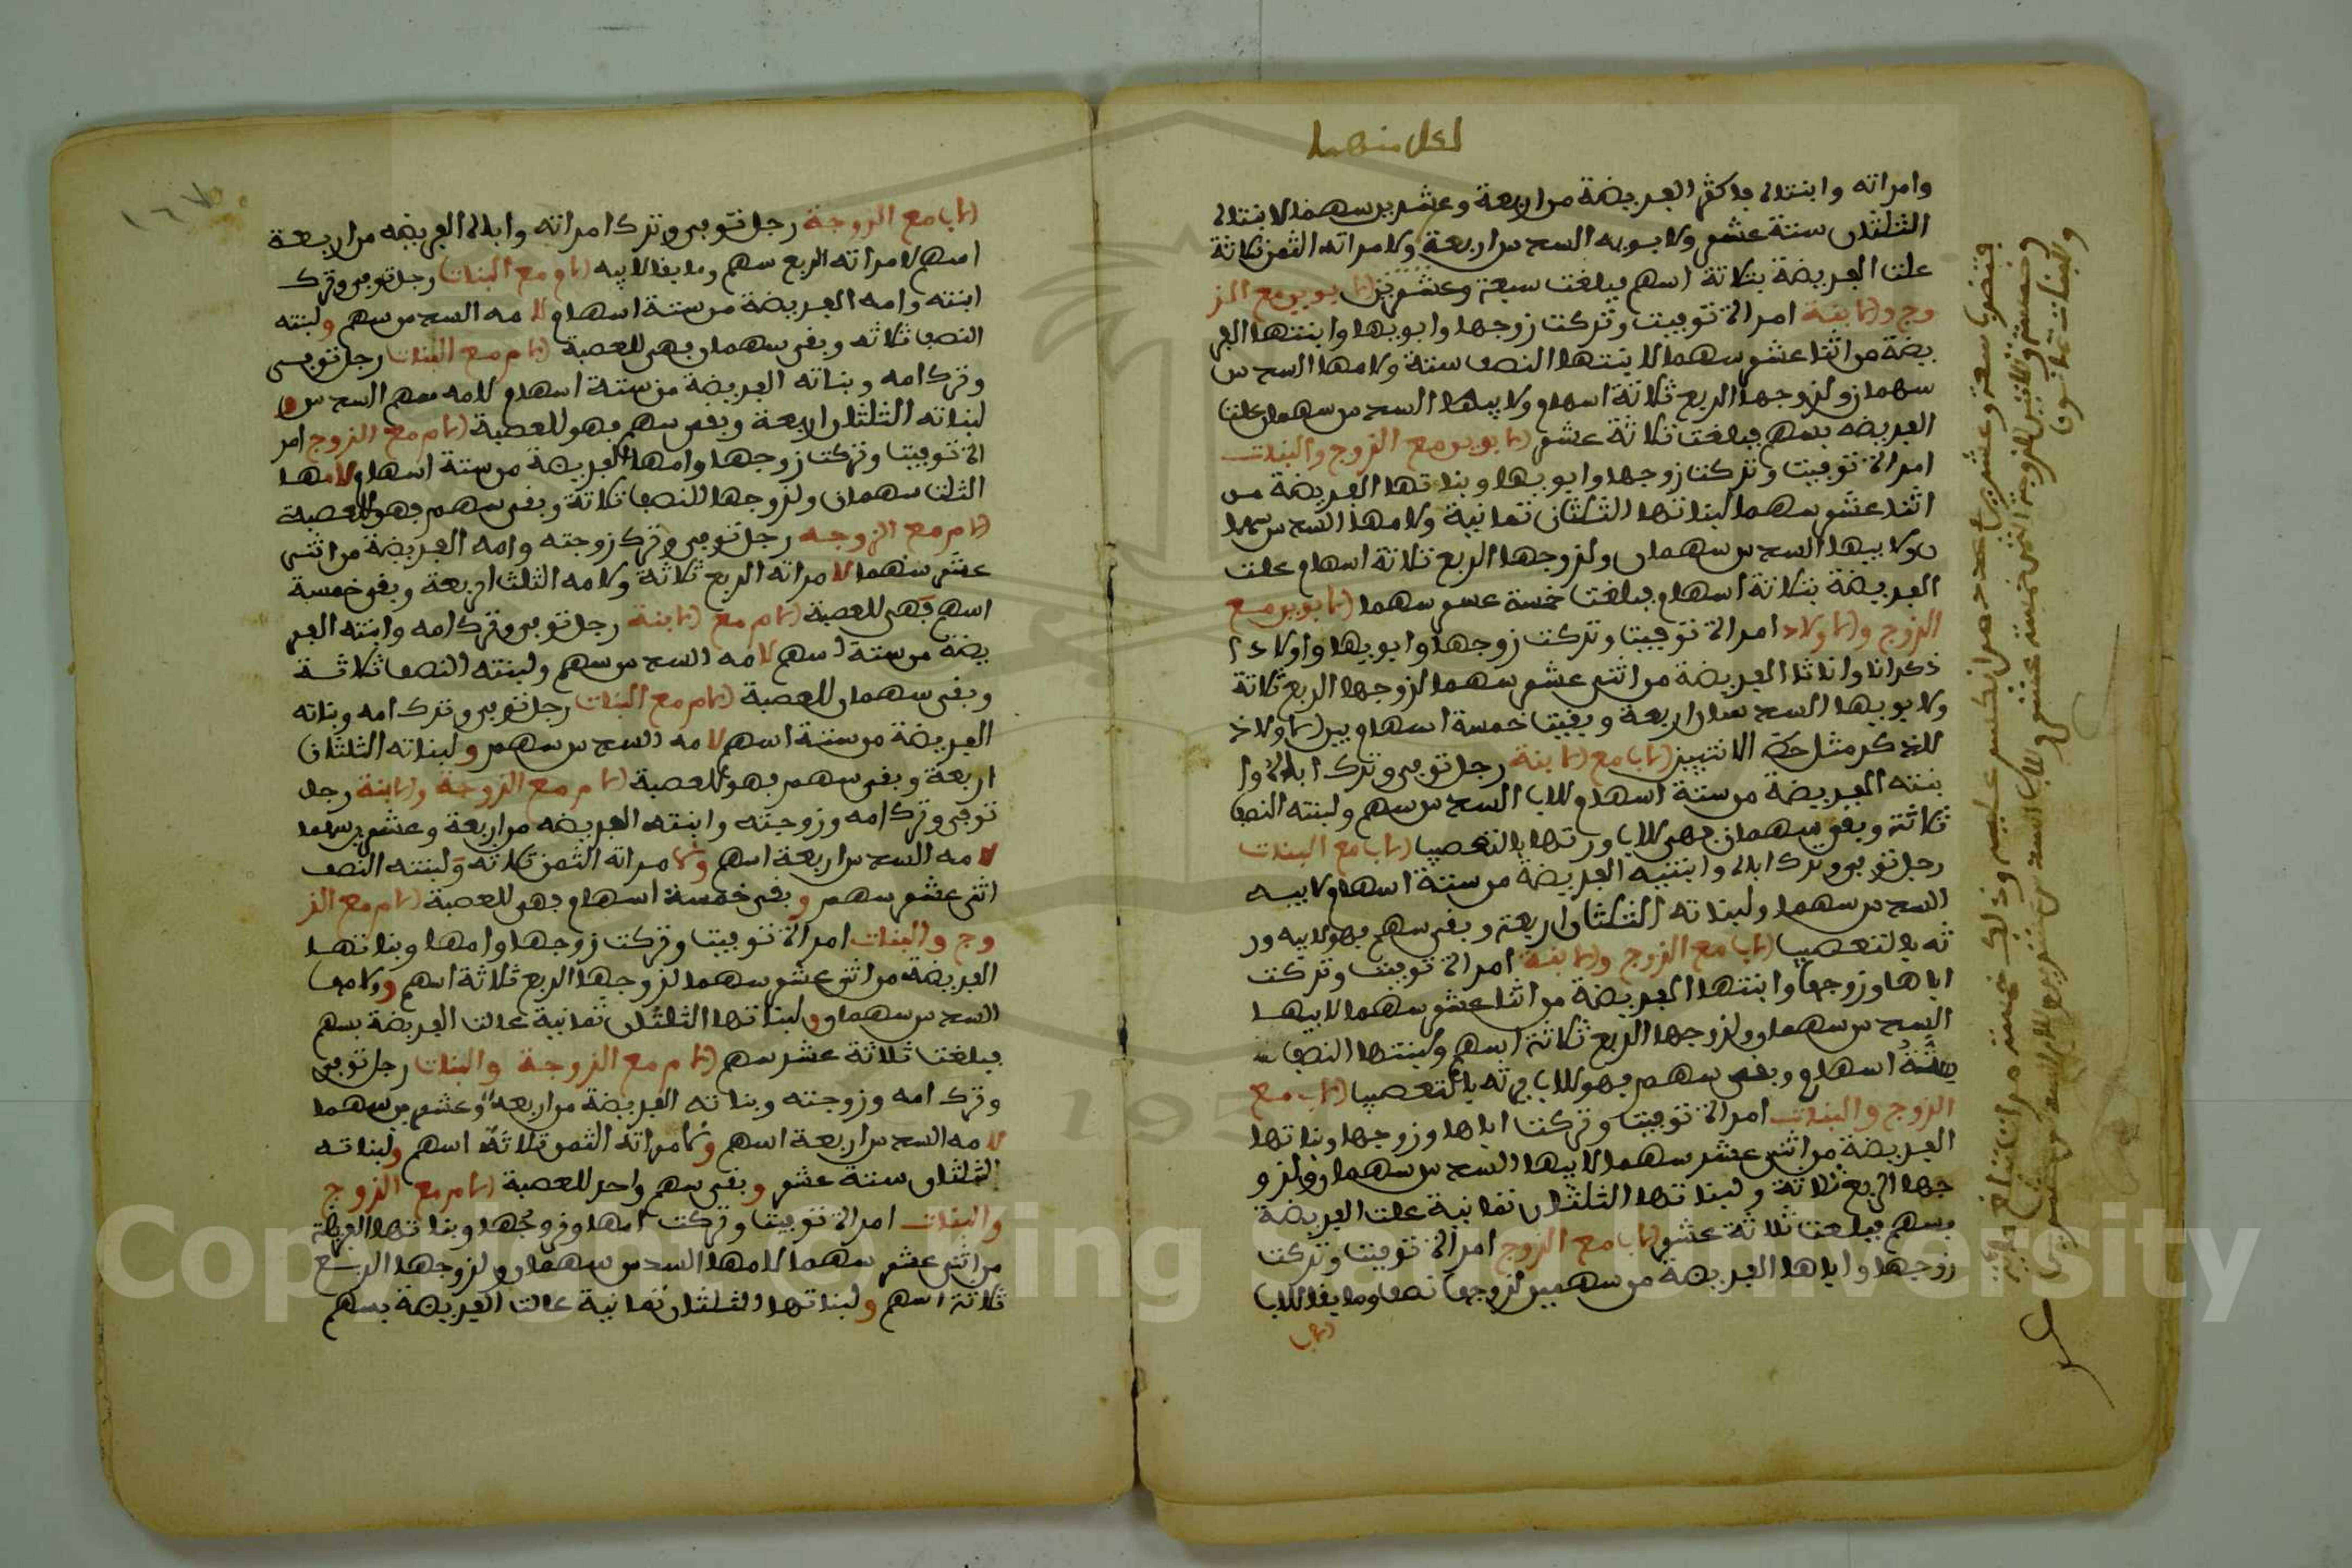 لكل منهما
وامراته وابنتاه فذلك الفريضة من اربعة وعشرين سهما لابنتاه
الثلثان ستة عشر ولابويه السدس اربعة ولامراته الثمن ثلاثة
علت الفريضة بثلاثة اسهم فبلغت سبعة وعشرين الابوين مع الز
وج والابنة امراة توفيت وتركت زوجها وابويها وابنتها الفر
يضة من اثنا عشر سهما لابنتها النصف ستة ولامها السدس
سهمان ولزوجها الربع ثلاثة اسهام ولابيها السدس سهمان علت
الفريضه بسهم فبلغت ثلاثة عشر الابوين مع الزوج والبنات
امراة توفيت وتركت زوجها وابويها وبناتها الفريضة من
اثنا عشر سهما لبناتها الثلثان ثمانية ولامها السدس سهما
ن ولابيها السدس سهمان ولزوجها الربع ثلاثة اسهام علت
الفريضة بثلاثة اسهام فبلغت خمسة عشر سهما الابوين مع
الزوج والاولاد امراة توفيت وتركت زوجها وابويها واولادا
ذكرانا واناثا الفريضة من اثنى عشر سهما لزوجها الربع ثلاثة
ولابويها السدسان اربعة وبقيت خمسة اسهام بين الاولاد
للذكر مثل حظ الانثيين الاب مع الابنة رجل توفى وترك اباه وا
بنته الفريضة من ستة اسهام للاب السدس سهم ولبنته النصف
ثلاثة وبقى سهمان فهى للاب ورثها بالتعصيب الاب مع البنات
رجل توفى وترك اباه وابنتيه الفريضة من ستة اسهام لابيه
السدس سهما ولبناته الثلثان اربعة وبقى سهم فهو لابيه ور
ثه بالتعصيب الاب مع الزوج والابنة امراة توفيت وتركت
اباها وزوجها وابنتها الفريضة من اثنا عشر سهما لابيها
السدس سهمان ولزوجها الربع ثلاثة اسهم ولبنتها النصف
ستة اسهام وبقى سهم فهو للاب ورثه بالتعصيب الاب مع
الزوج والبنات امراة توفيت وتركت اباها وزوجها وبناتها
الفريضة من اثنى عشر سهما لابيها السدس سهمان ولزو
جها الربع ثلاثة ولبناتها الثلثان ثمانية علت الفريضة
بسهم فبلغت ثلاثة عشر الاب مع الزوج امراة توفيت وتركت
زوجها واباها الفريضة من سهمين لزوجها نصف وما بقا للاب
الاب
الاب مع الزوجة رجل توفى وترك امراته واباه الفريضه من اربعة
اسهم لامراته الربع سهم وما بقا لابيه الام مع البنات رجل توفى وترك
ابنته وامه الفريضة من ستة اسهام لامه السدس سهم ولبنته
النصف ثلاثه وبقى سهمان فهى للعصبة الام مع البنات رجل توفى
وترك امه وبناته الفريضة من ستة اسهام لامه سهم السدس و
لبناته الثلثان اربعة وبقى سهم فهو للعصبة الام مع الزوج امر
اة توفيت وتركت زوجها وامها الفريضة من ستة اسهام ولامها
الثلث سهمان ولزوجها النصف ثلاثة وبقى سهم فهو للعصبة
الام مع الزوجه رجل توفى وترك زوجته وامه الفريضة من اثنى
عشر سهما لامراته الربع ثلاثة ولامه الثلث اربعة وبقى خمسة
اسهم فهى للعصبة الام مع الابنة رجل توفى وترك امه وابنته الفر
يضة من ستة اسهم لامه السدس سهم ولبنته النصف ثلاثة
وبقى سهمان للعصبة الام مع البنات رجل توفى وترك امه وبناته
الفريضة من ستة اسهم لامه السدس سهم ولبناته الثلثان
اربعة وبقى سهم فهو للعصبة الام مع الزوجة والابنة رجل
توفى وترك امه وزوجته وابنته الفريضه من اربعة وعشرين سهما
لامه السدس اربعة اسهم ولامراته الثمن ثلاثه ولبنته النصف
اثنى عشر سهم وبقى خمسة اسهام فهى للعصبة الام مع الز
وج والبنات امراة توفيت وتركت زوجها وامها وبناتها
الفريضة من اثنى عشر سهما لزوجها الربع ثلاثة اسهم ولامها
السدس سهمان ولبناتها الثلثان ثمانية عالت الفريضة بسهم
فبلغت ثلاثة عشر سهم الام مع الزوجة والبنات رجل توفى
وترك امه وزوجته وبناته الفريضة من اربعة وعشرين سهما
لامه السدس اربعة اسهم ولامراته الثمن ثلاثة اسهم ولبناته
الثلثان ستة عشر وبقى سهم واحد للعصبة الام مع الزوج
والبنات امراة توفيت وتركت امها وزوجها وبناتها الفريضة
من اثنى عشر سهما لامها السدس سهمان ولزوجها الربع
ثلاثة اسهم ولبناتها الثلثان ثمانية عالت الفريضة بسهم